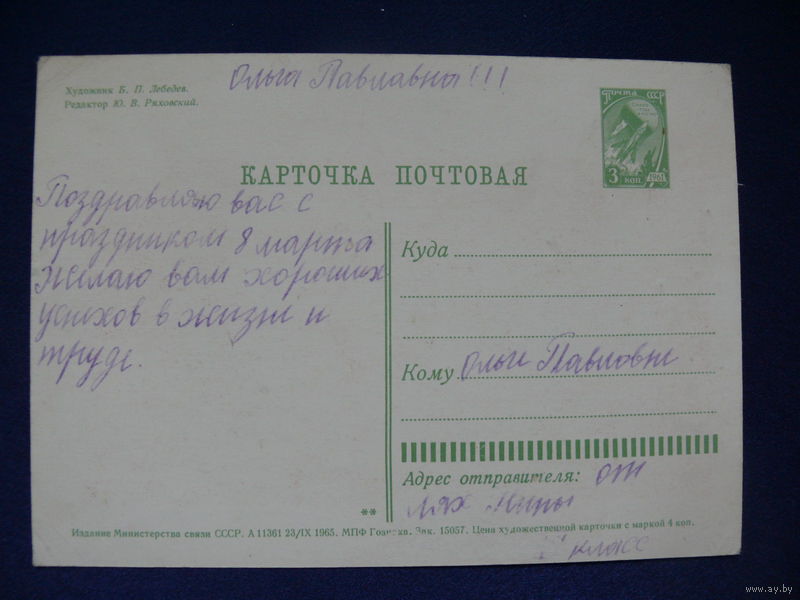 Ольга Павлавна!!!
Художник Б. П. Лебедев.
Редактор Ю. В. Ряховский.
ПОЧТА СССР
3 КОП. 1961
КАРТОЧКА ПОЧТОВАЯ
Поздравляю вас с
праздником 8 марта
Желаю вам хороших
успехов в жизни и
труде.
Куда
Кому Ольги Павловне
Адрес отправителя: от
Лях Нины
класс
**
Издание Министерства связи СССР. А 11361 23/IX 1965. МПФ Гознака. Зак. 15057. Цена художественной карточки с маркой 4 коп.
www.ay.by